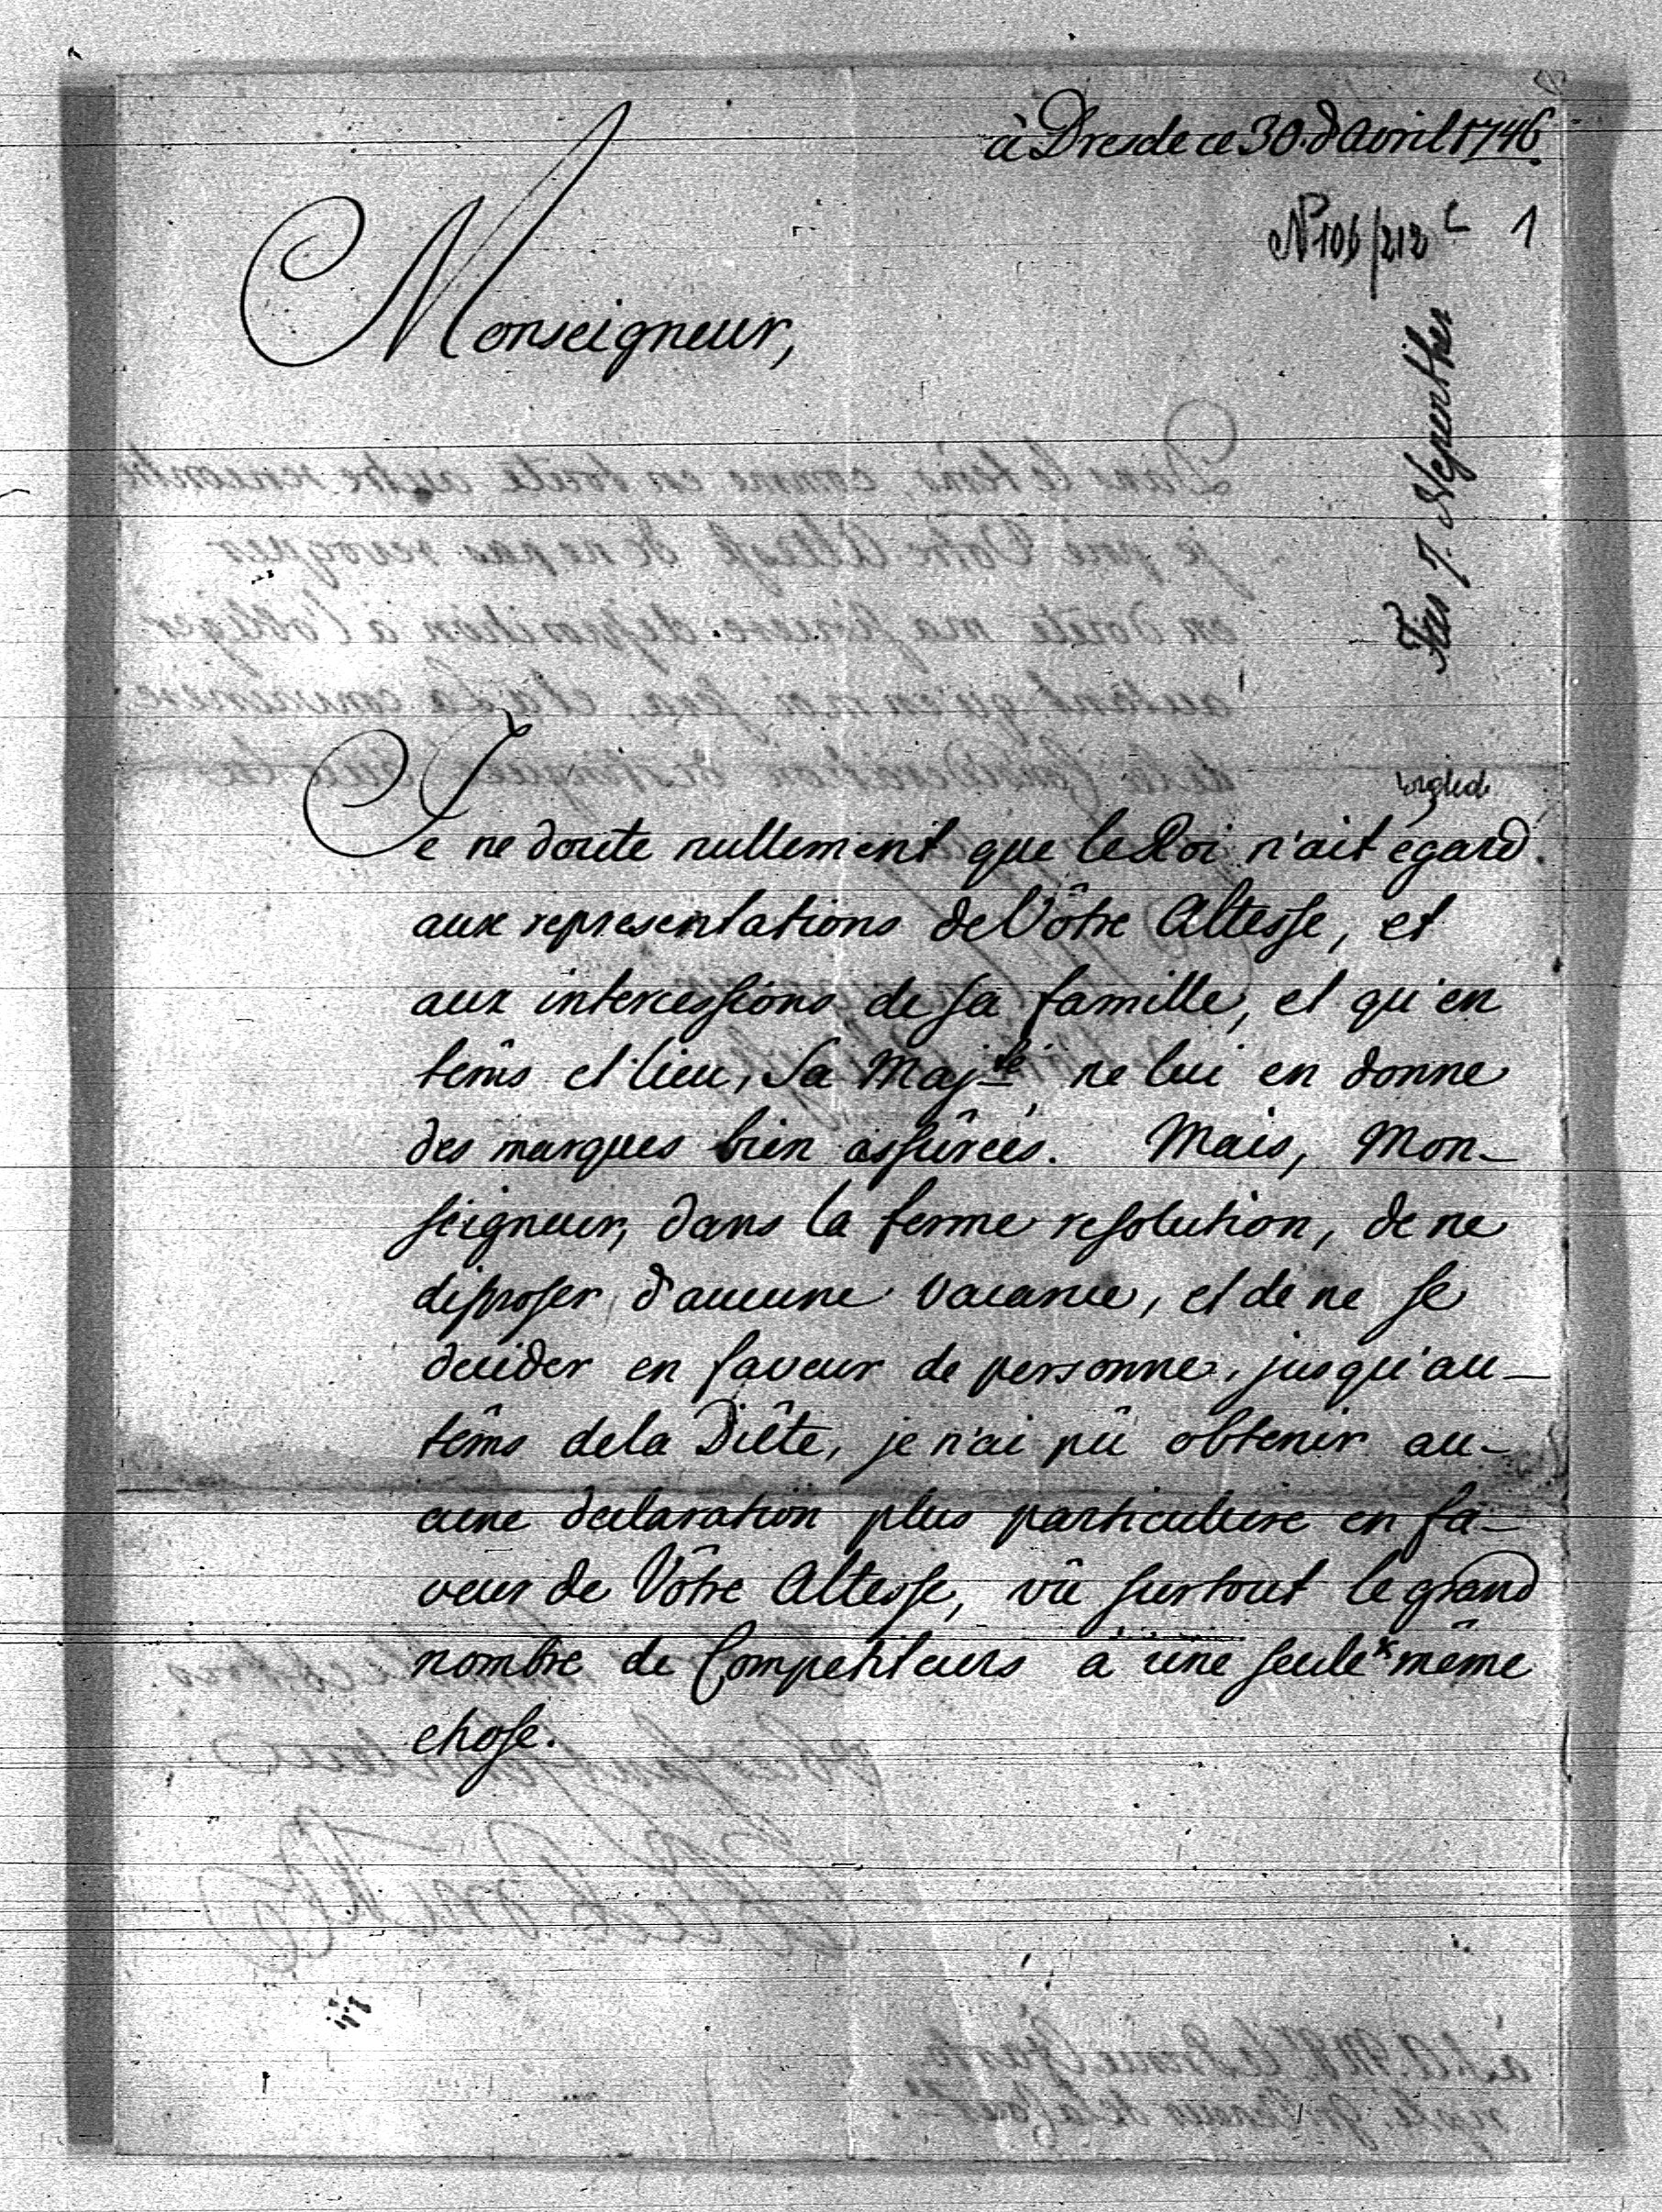 à Dresde ce 30. d'Avril 1746
N 106/212 1
Monseigneur,
Je ne doute nullement que le Roi n'ait égard
aux representations de Vôtre Altesse, et
aux intercessions de sa famille, et qu'en
têms et lieu, Sa Maj.té ne lui en donne
des marques bien assûrées. Mais, Mon-
seigneur, dans la ferme resolution, de ne
disposer d'aucune vacance, et de ne se
decider en faveur de personne, jusqu'au-
têms de la Diête, je n'ai pû obtenir au-
cune declaration plus particuliere en fa-
veur de Vôtre Altesse, vû surtout le grand
nombre de Competiteurs a une seule & même
chose.